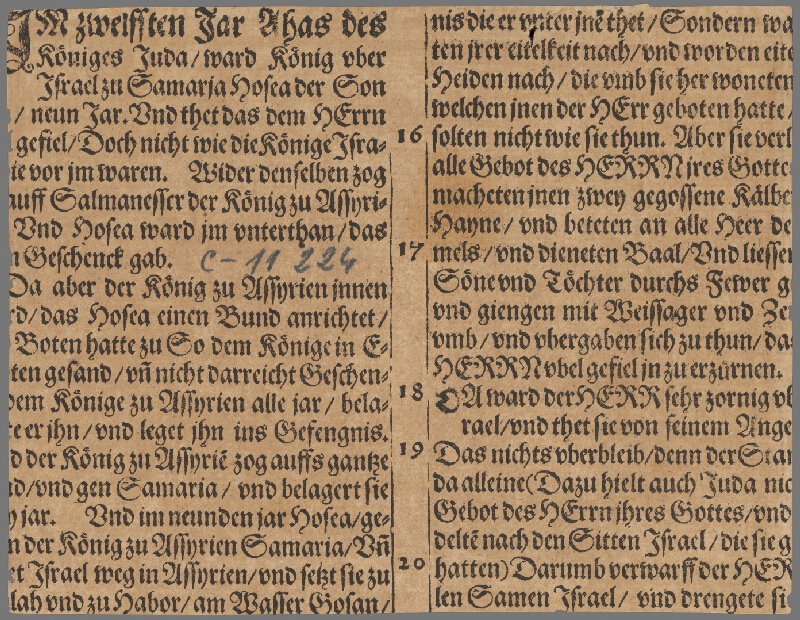 IM zwelfften Jar Ahas des
Königes Juda/ ward König vber
Jsrael zu Samarja Hosea der Son
/ neun Jar. Vnd thet das dem HErrn
gefiel/ Doch nicht wie die Könige Jsra-
ie vor jm waren. Wider denselben zog
auff Salmanesser der König zu Assyri-
Vnd Hosea ward jm vnterthan/ das
n Geschenck gab.
C-11 224
Da aber der König zu Assyrien jnnen
rd/ das Hosea einen Bund anrichtet/
Boten hatte zu So dem Könige in E-
ten gesand/ vñ nicht darreicht Geschen-
dem Könige zu Assyrien alle jar/ bela-
te er jhn/ vnd leget jhn ins Gefengnis.
d der König zu Assyriē zog auffs gantze
nd/ vnd gen Samaria/ vnd belagert sie
y jar. Vnd im neunden jar Hosea/ ge-
n der König zu Assyrien Samaria/ Vñ
et Jsrael weg in Assyrien/ vnd setzt sie zu
lah vnd zu Habor/ am Wasser Gosan/
nis die er vnter jnē thet/ Sondern wa
ten jrer eitelkeit nach/ vnd worden eite
Heiden nach/ die vmb sie her woneten
welchen jnen der HErr geboten hatte/
16 solten nicht wie sie thun. Aber sie verl
alle Gebot des HERRN jres Gotte
macheten jnen zwey gegossene Kälbe
Hayne/ vnd beteten an alle Heer de
17 mels/ vnd dieneten Baal/ Vnd liessen
Söne vnd Töchter durchs Fewer g
vnd giengen mit Weissager vnd Ze
vmb/ vnd vbergaben sich zu thun/ da
HERRN vbel gefiel jn zu erzürnen.
18 DA ward der HERR sehr zornig vb
rael/ vnd thet sie von seinem Ange
19 Das nichts vberbleib/ denn der Stam
da alleine (Dazu hielt auch Juda nic
Gebot des HErrn jhres Gottes/ vnd
deltē nach den Sitten Jsrael/ die sie g
20 hatten) Darumb verwarff der HER
len Samen Jsrael/ vnd drengete sie